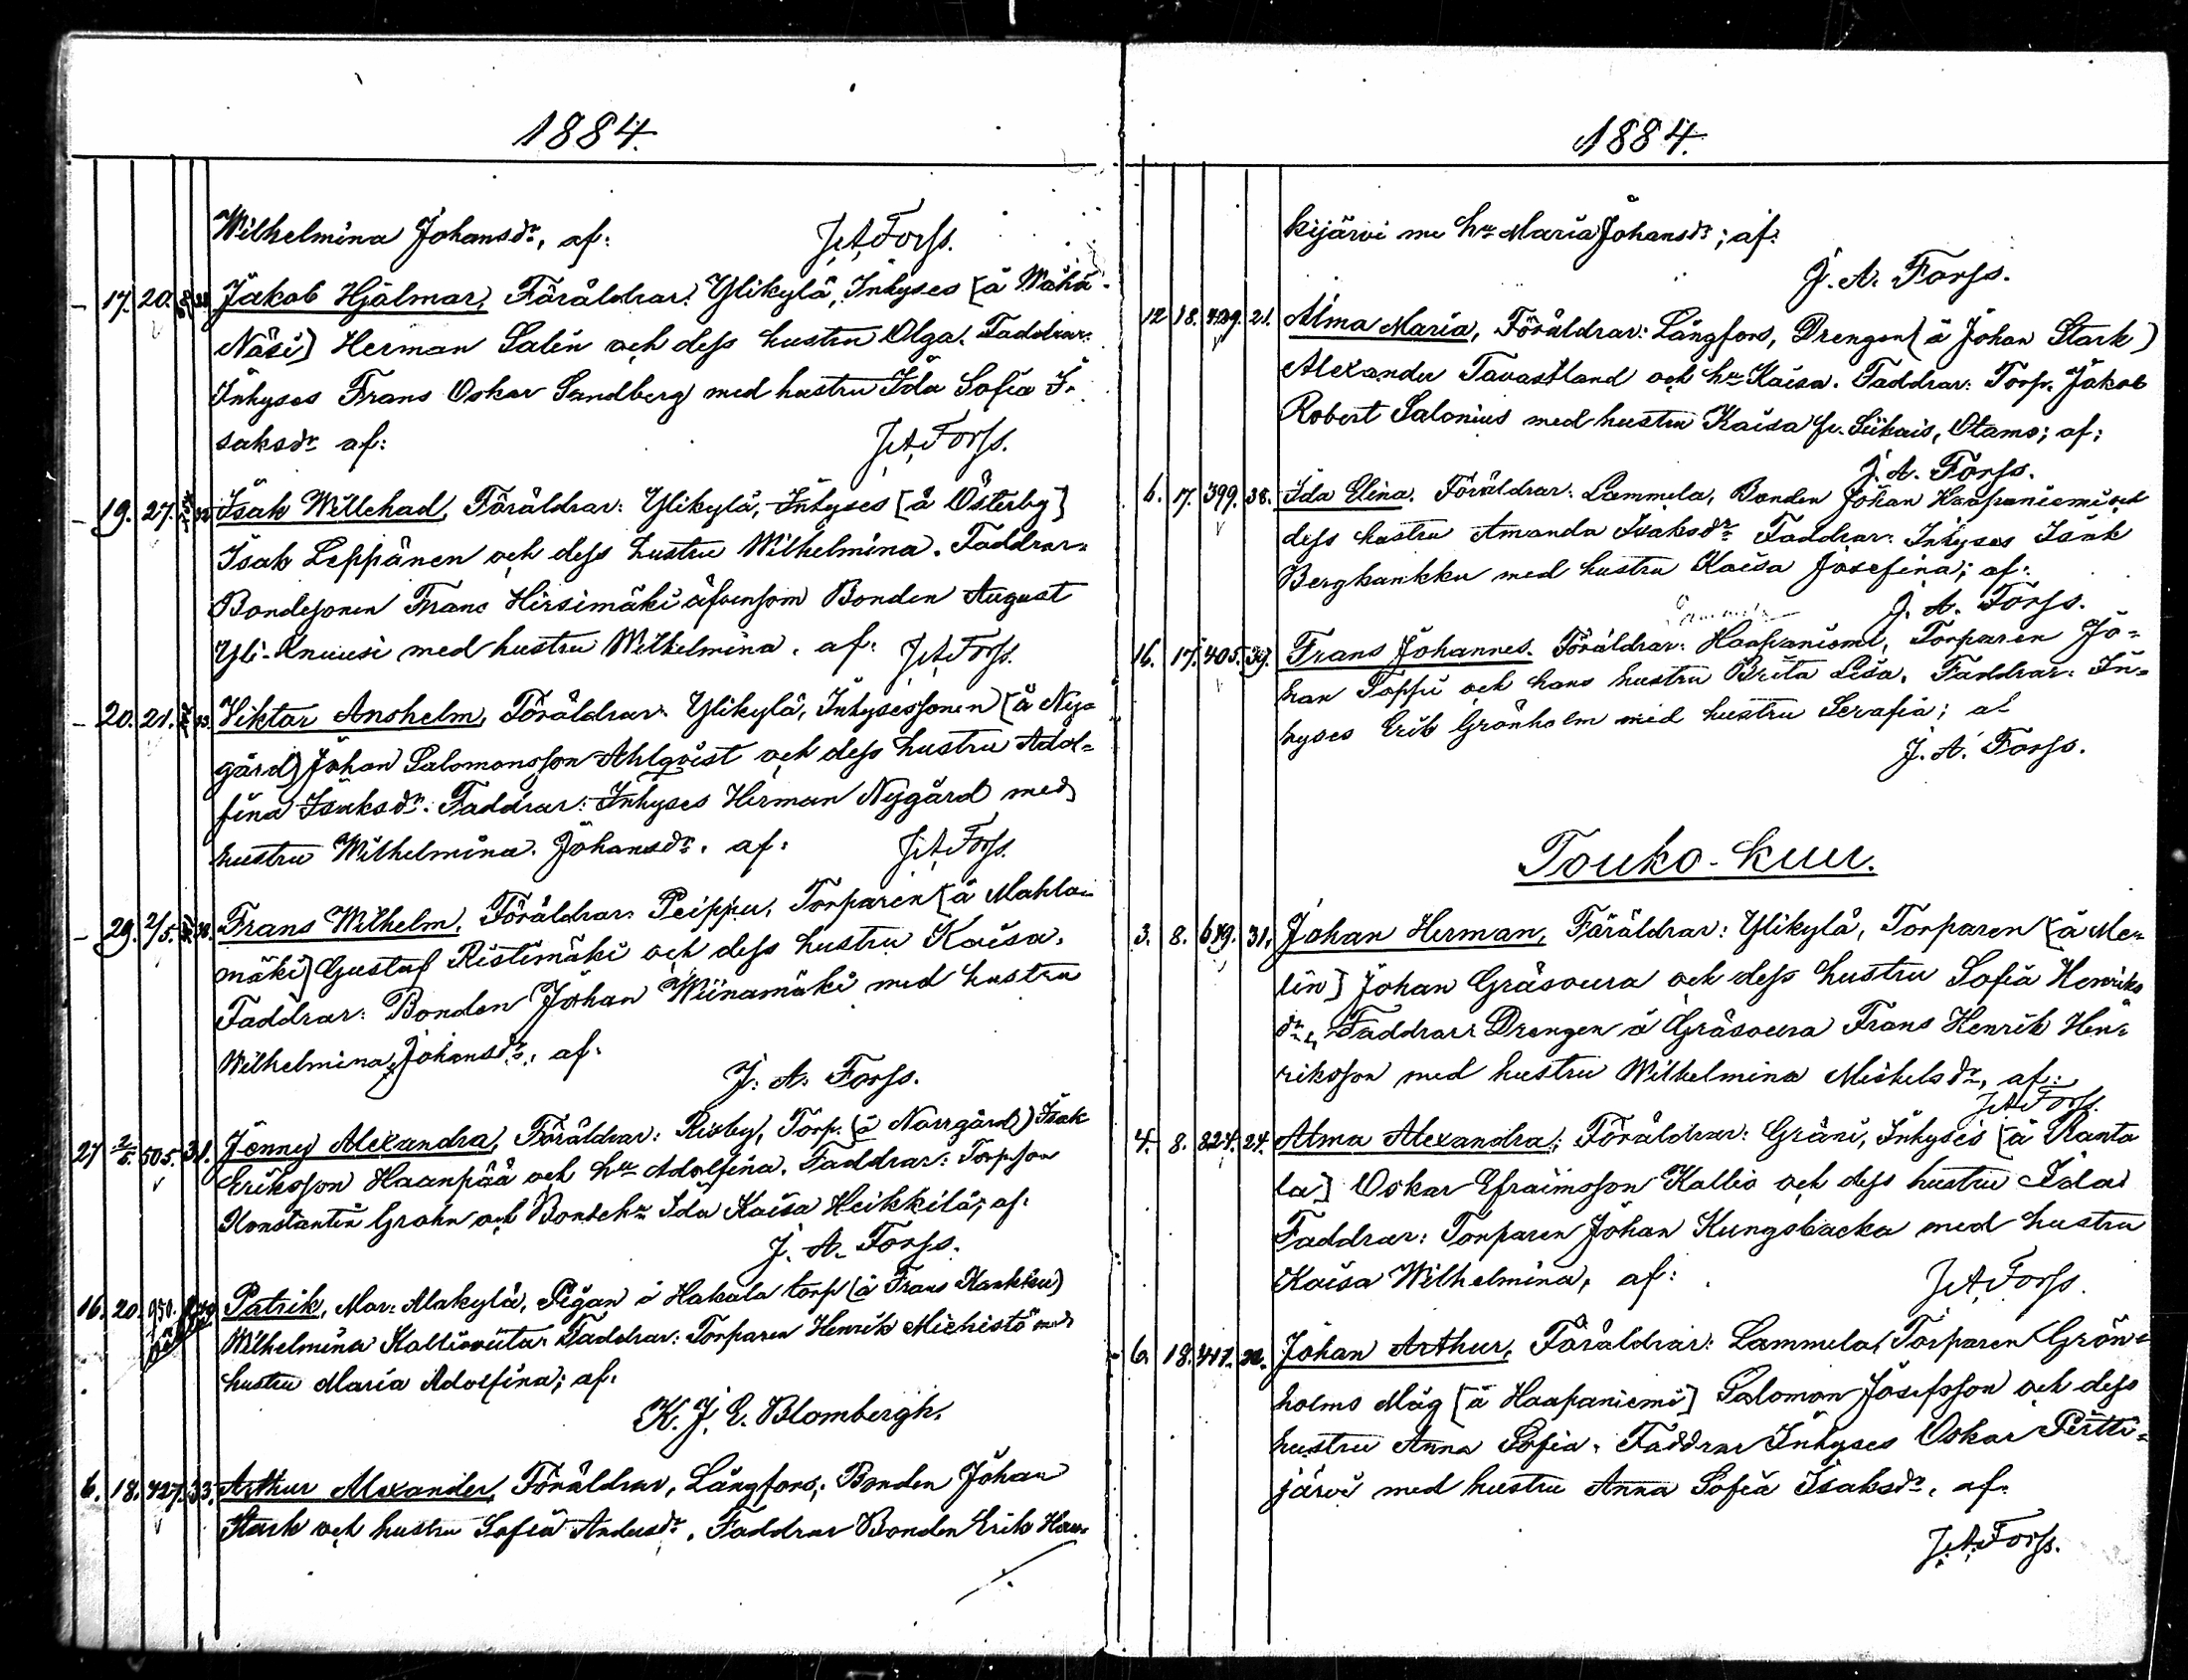 1884.
Wilhelmina Johansdr, af: J.A.Forss.
17. 20. Jakob Hjalmar, Föräldrar: Ylikylä, Inhyses [å Wähä-
Näsi] Herman Salin och dess hustru Olga. Faddrar:
Inhyses Frans Oskar Sandberg med hustru Ida Sofia I-
saksdr af: J.A.Forss.
19. 27. Isak Willehad, Föräldrar: Ylikylä, Inhyses [å Österby]
Isak Leppänen och dess hustru Wilhelmina. Faddrar:
Bondesonen Frans Hirsimäki äfvensom Bonden August
Yli-Knuusi med hustru Wilhelmina, af: J.A.Forss.
20. 21. Viktor Anshelm, Föräldrar: Ylikylä, Inhysessonen [å Ny-
gård] Johan Salomonsson Ahlqvist och dess hustru Adol-
fina Isaksdr. Faddrar: Inhyses Herman Nygård med
hustru Wilhelmina Johansdr, af: J.A.Forss.
29. 2/5. Frans Wilhelm, Föräldrar: Peippu, Torparen [å Mahla-
mäki] Gustaf Ristimäki och dess hustru Kaisa.
Faddrar: Bonden Johan Wiinamäki med hustru
Wilhelmina Johansdr, af:
J. A. Forss.
27 2/5. 505. 31. Jenny Alexandra, Föräldrar: Risby, Torp. (å Norrgård) Isak
Eriksson Haanpää och hru Adolfina. Faddrar: Torpson
Konstantin Grahn och Bondehru Ida Kaisa Heikkilä; af:
J. A. Forss.
16. 20. 950. Patrik, Mor: Alakylä, Pigan å Hakala torp (å Frans Kankku)
Wilhelmina Kalliovuita. Faddrar: Torparen Henrik Michistö med
hustru Maria Adolfina; af:
K. J. E. Blombergh.
6. 18. 427. 33. Arthur Alexander, Föräldrar, Långfors; Bonden Johan
Stark och hustru Sofia Andersdr, Faddrar Bonden Erik Hau-
1884.
kijärvi me hru Maria Johansdr; af:
J. A. Forss.
12 18. 429. 21. Alma Maria, Föräldrar: Långfors, Drengen (å Johan Stark)
Alexander Tavastland och hru Kaisa. Faddrar: Torp. Jakob
Robert Salonius med hustru Kaisa fr. Siikais, Otamo; af:
J. A. Forss.
6. 17. 399. 38. Ida Elina. Föräldrar: Lammela, Bonden Johan Haapaniemi och
dess hustru Amanda Isaksdr. Faddrar: Inhyses Isak
Bergkankku med hustru Kaisa Josefina; af:
J. A. Forss.
16. 17. 405. 39. Frans Johannes. Föräldrar: Haapaniemi, Torparen Jo-
han Toppi och hans hustru Brita Lisa. Faddrar: In-
hyses Erik Grönholm med hustru Serafia; af
J. A. Forss.
Touko-kuu.
3. 8. 619. 31. Johan Herman, Föräldrar: Ylikylä, Torparen [å Me-
lin] Johan Gräsoura och dess hustru Sofia Henriks
dr, Faddrar: Drengen å Gräsoura Frans Henrik Hen-
riksson med hustru Wilhelmina Mickelsdr, af:
J.A.Forss.
4. 8. 824. 24. Alma Alexandra; Föräldrar: Gräni, Inhyses [å Ranta
la] Oskar Efraimsson Kallio och dess hustru Ida
Faddrar: Torparen Johan Kungsbacka med hustru
Kaisa Wilhelmina, af: J.A.Forss.
6. 18. 417. Johan Arthur, Föräldrar: Lammela, Torparen Grön-
holms Måg [å Haapaniemi] Salomon Josefsson och dess
hustru Anna Sofia. Faddrar Inhyses Oskar Pertti-
järvi med hustru Anna Sofia Isaksdr, af:
J.A.Forss.